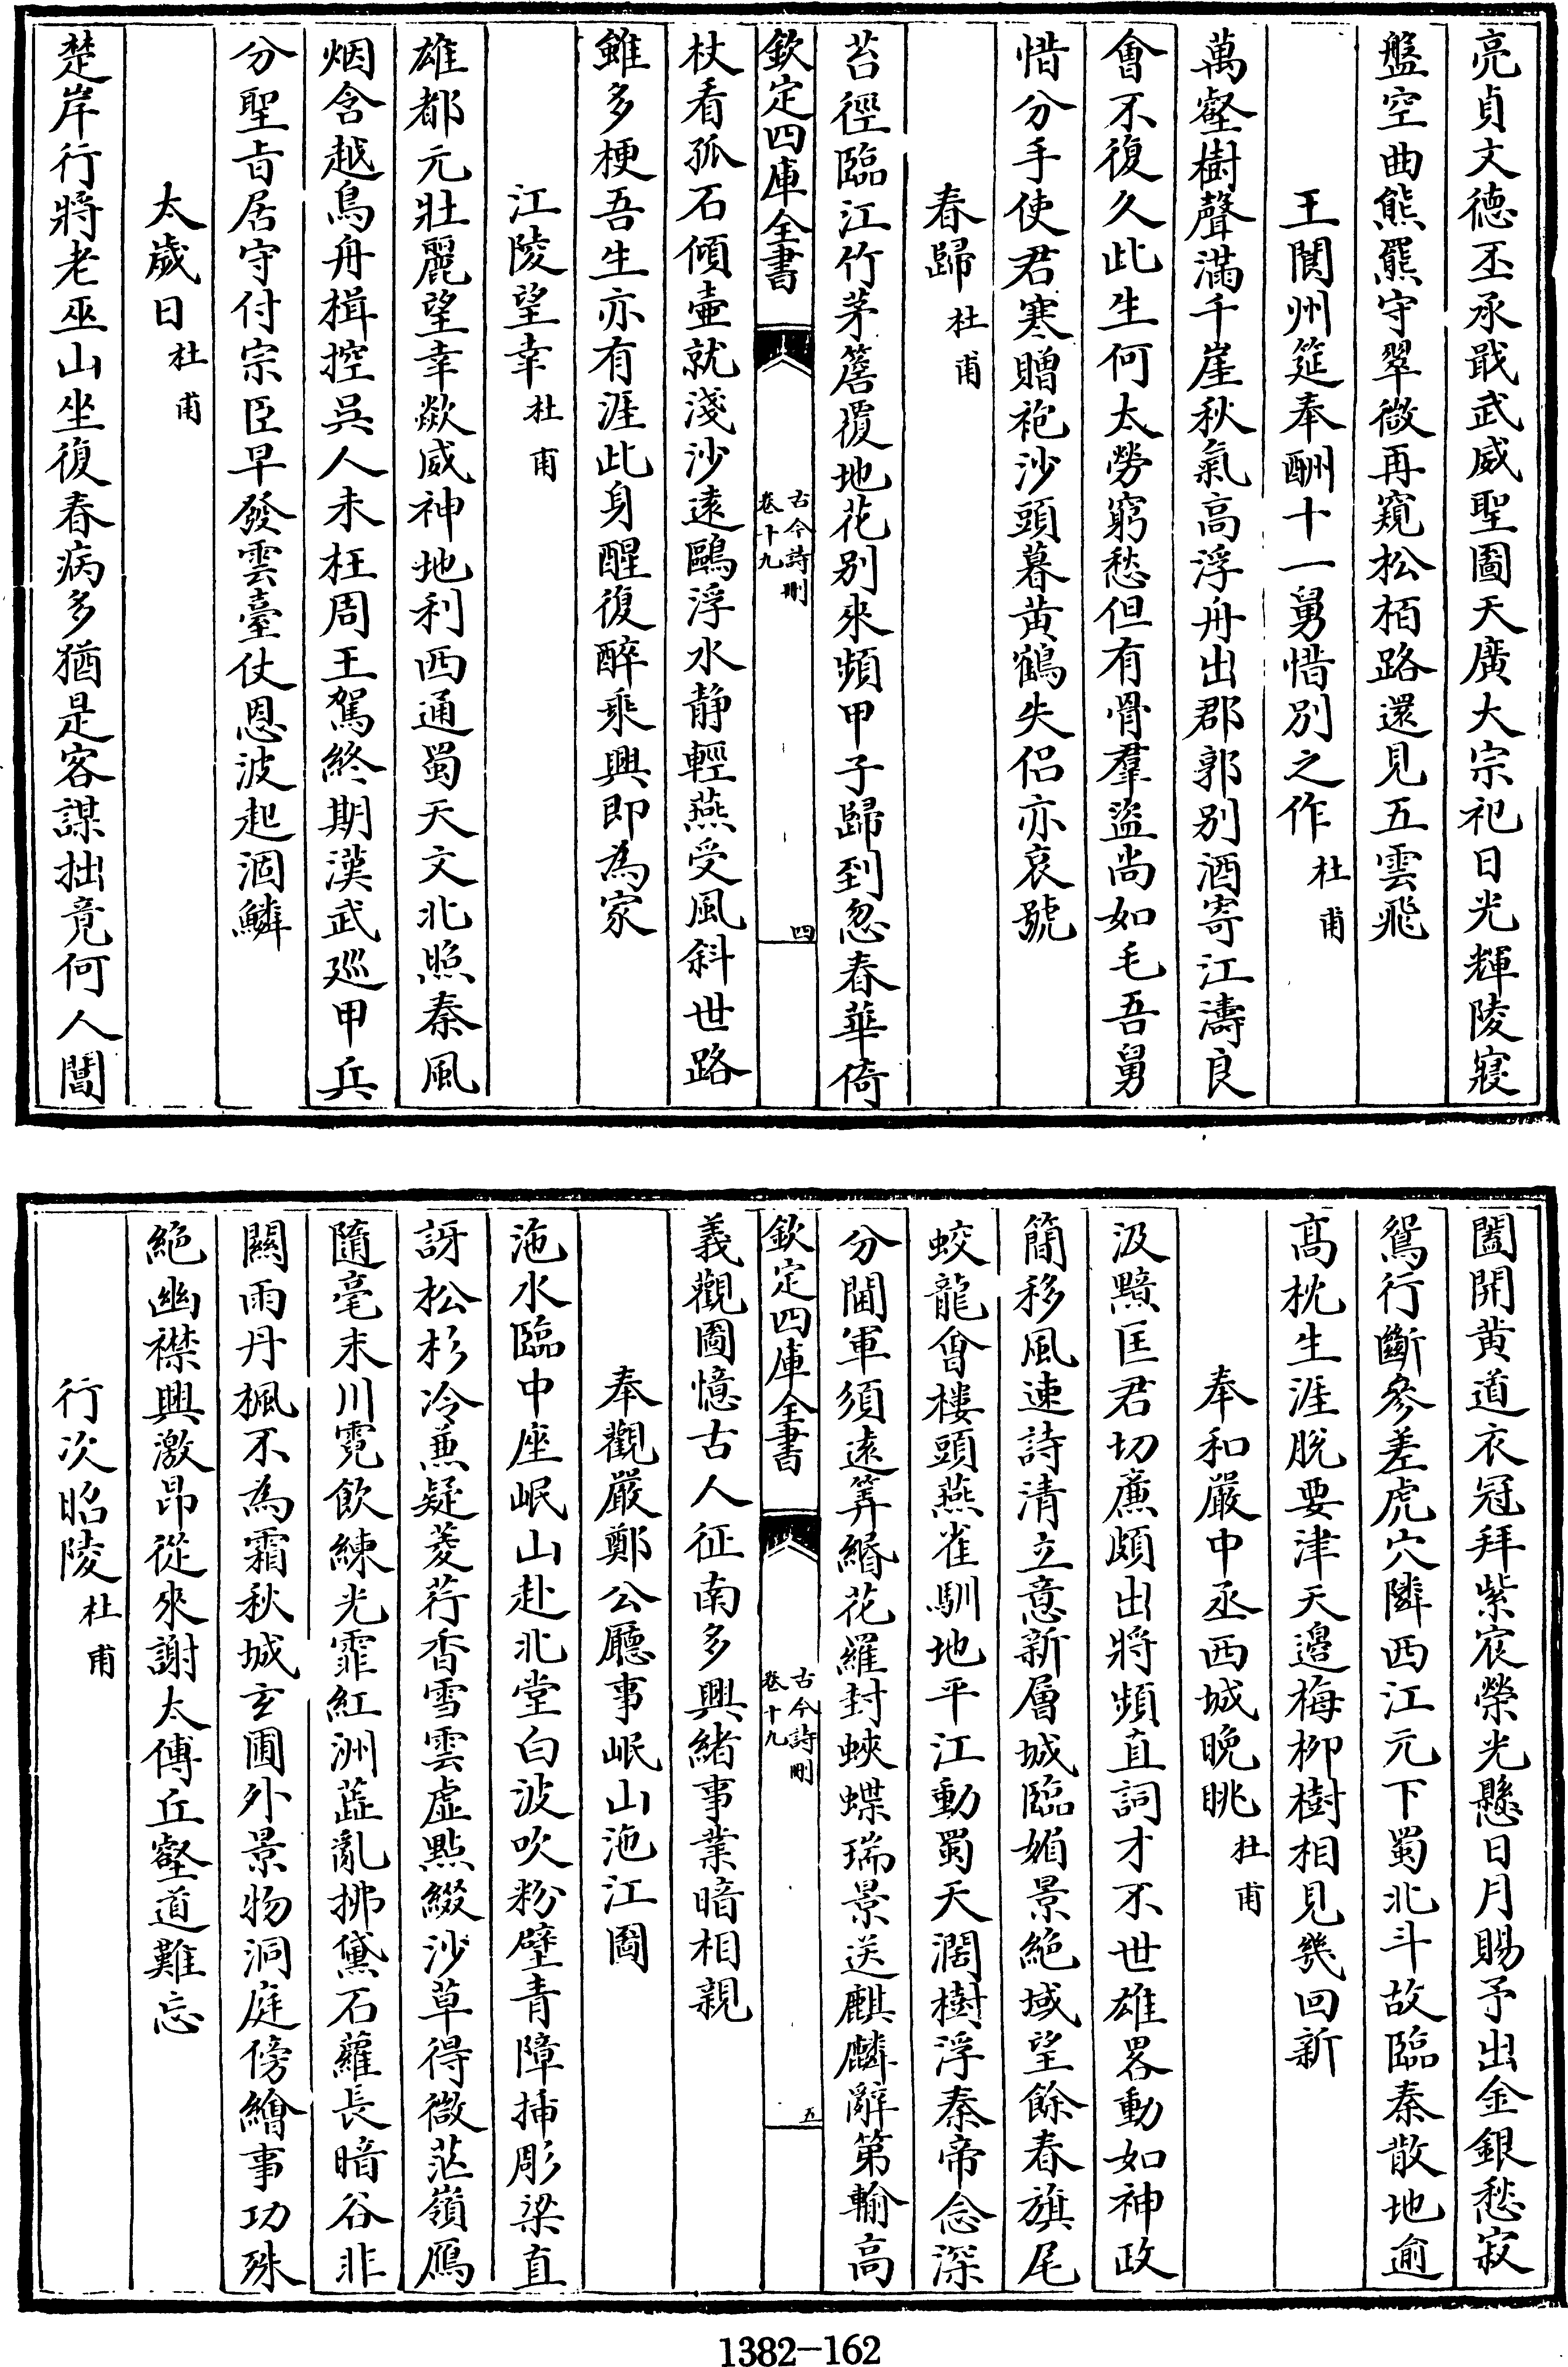 亮貞文德丕承戢武威聖圖天廣大宗祀日光輝陵寢
盤空曲熊羆守翠微再窺松栢路還見五雲飛
王閬州筵奉酬十一舅惜別之作杜甫
萬壑樹聲滿千崖秋氣高浮舟出郡郭别酒寄江濤良
會不復久此生何太勞窮愁但有骨羣盜尚如毛吾舅
惜分手使君寒贈袍沙頭暮黃鶴失侣亦哀號
春歸杜甫
苔徑臨江竹茅簷覆地花别來頻甲子歸到忽春華倚
欽定四庫全書
古今詩刪
卷十九
四
杖看孤石傾壺就淺沙遠鷗浮水静輕燕受風斜世路
雖多梗吾生亦有涯此身醒復醉乘興即為家
江陵望幸杜甫
雄都元壯麗望幸歘威神地利西通蜀天文北照秦風
烟含越鳥舟楫控吳人未枉周王駕終期漢武巡甲兵
分聖㫖居守付宗臣早發雲臺仗恩波起涸鱗
太歲日杜甫
楚岸行將老巫山坐復春病多猶是客謀拙竟何人閶
闔開黃道衣冠拜紫宸榮光懸日月賜予出金銀愁寂
鴛行斷參差虎穴隣西江元下蜀北斗故臨秦散地逾
髙枕生涯脫要津天邊梅栁樹相見幾回新
奉和嚴中丞西城晚眺杜甫
汲黯匡君切亷頗出將頻直詞才不世雄畧動如神政
簡移風速詩清立意新層城臨媚景絶域望餘春旗尾
蛟龍會樓頭燕雀馴地平江動蜀天濶樹浮秦帝念深
分閫軍須遠筭緡花羅封蛺蝶瑞景送麒麟辭第輸高
欽定四庫全書
古今詩刪
卷十九
五
義觀圖憶古人征南多興緒事業暗相親
奉觀嚴鄭公廳事岷山沲江圖
沲水臨中座岷山赴北堂白波吹粉壁青障揷彫梁直
訝松杉冷兼疑菱荇香雪雲虛點綴沙草得微茫嶺鴈
隨毫末川霓飲練光霏紅洲蕋亂拂黛石蘿長暗谷非
關雨丹楓不為霜秋城玄圃外景物洞庭傍繪事功殊
絶幽襟興激昂從來謝太傅丘壑道難忘
行次昭陵杜甫
1382-162